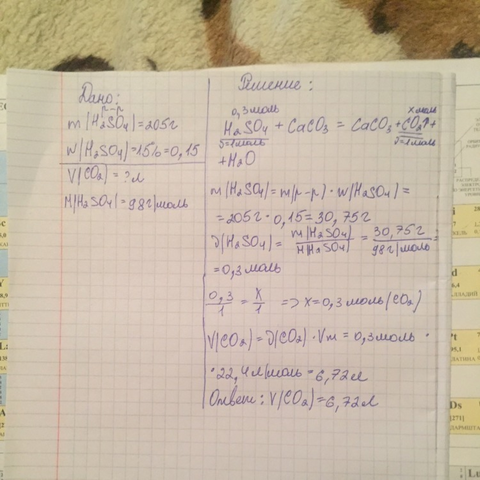 Дано:
р-р
m(H₂SO₄)=205г
W(H₂SO₄)=15%=0,15
V(CO₂)=?л
M(H₂SO₄)=98г/моль
Решение:
0,3моль x моль
H₂SO₄ + CaCO₃ = CaCO₃ + CO₂↑ +
ν=1моль ν=1моль
+H₂O
m(H₂SO₄)=m(р-р)·W(H₂SO₄)=
=205г·0,15=30,75г
ν(H₂SO₄)= m(H₂SO₄)/M(H₂SO₄) = 30,75г/98г/моль =
=0,3моль
0,3/1 = x/1 => x=0,3моль(CO₂)
V(CO₂)=ν(CO₂)·Vm=0,3моль·
·22,4л/моль=6,72л
Ответ: V(CO₂)=6,72л
Pt
Ds
[271]